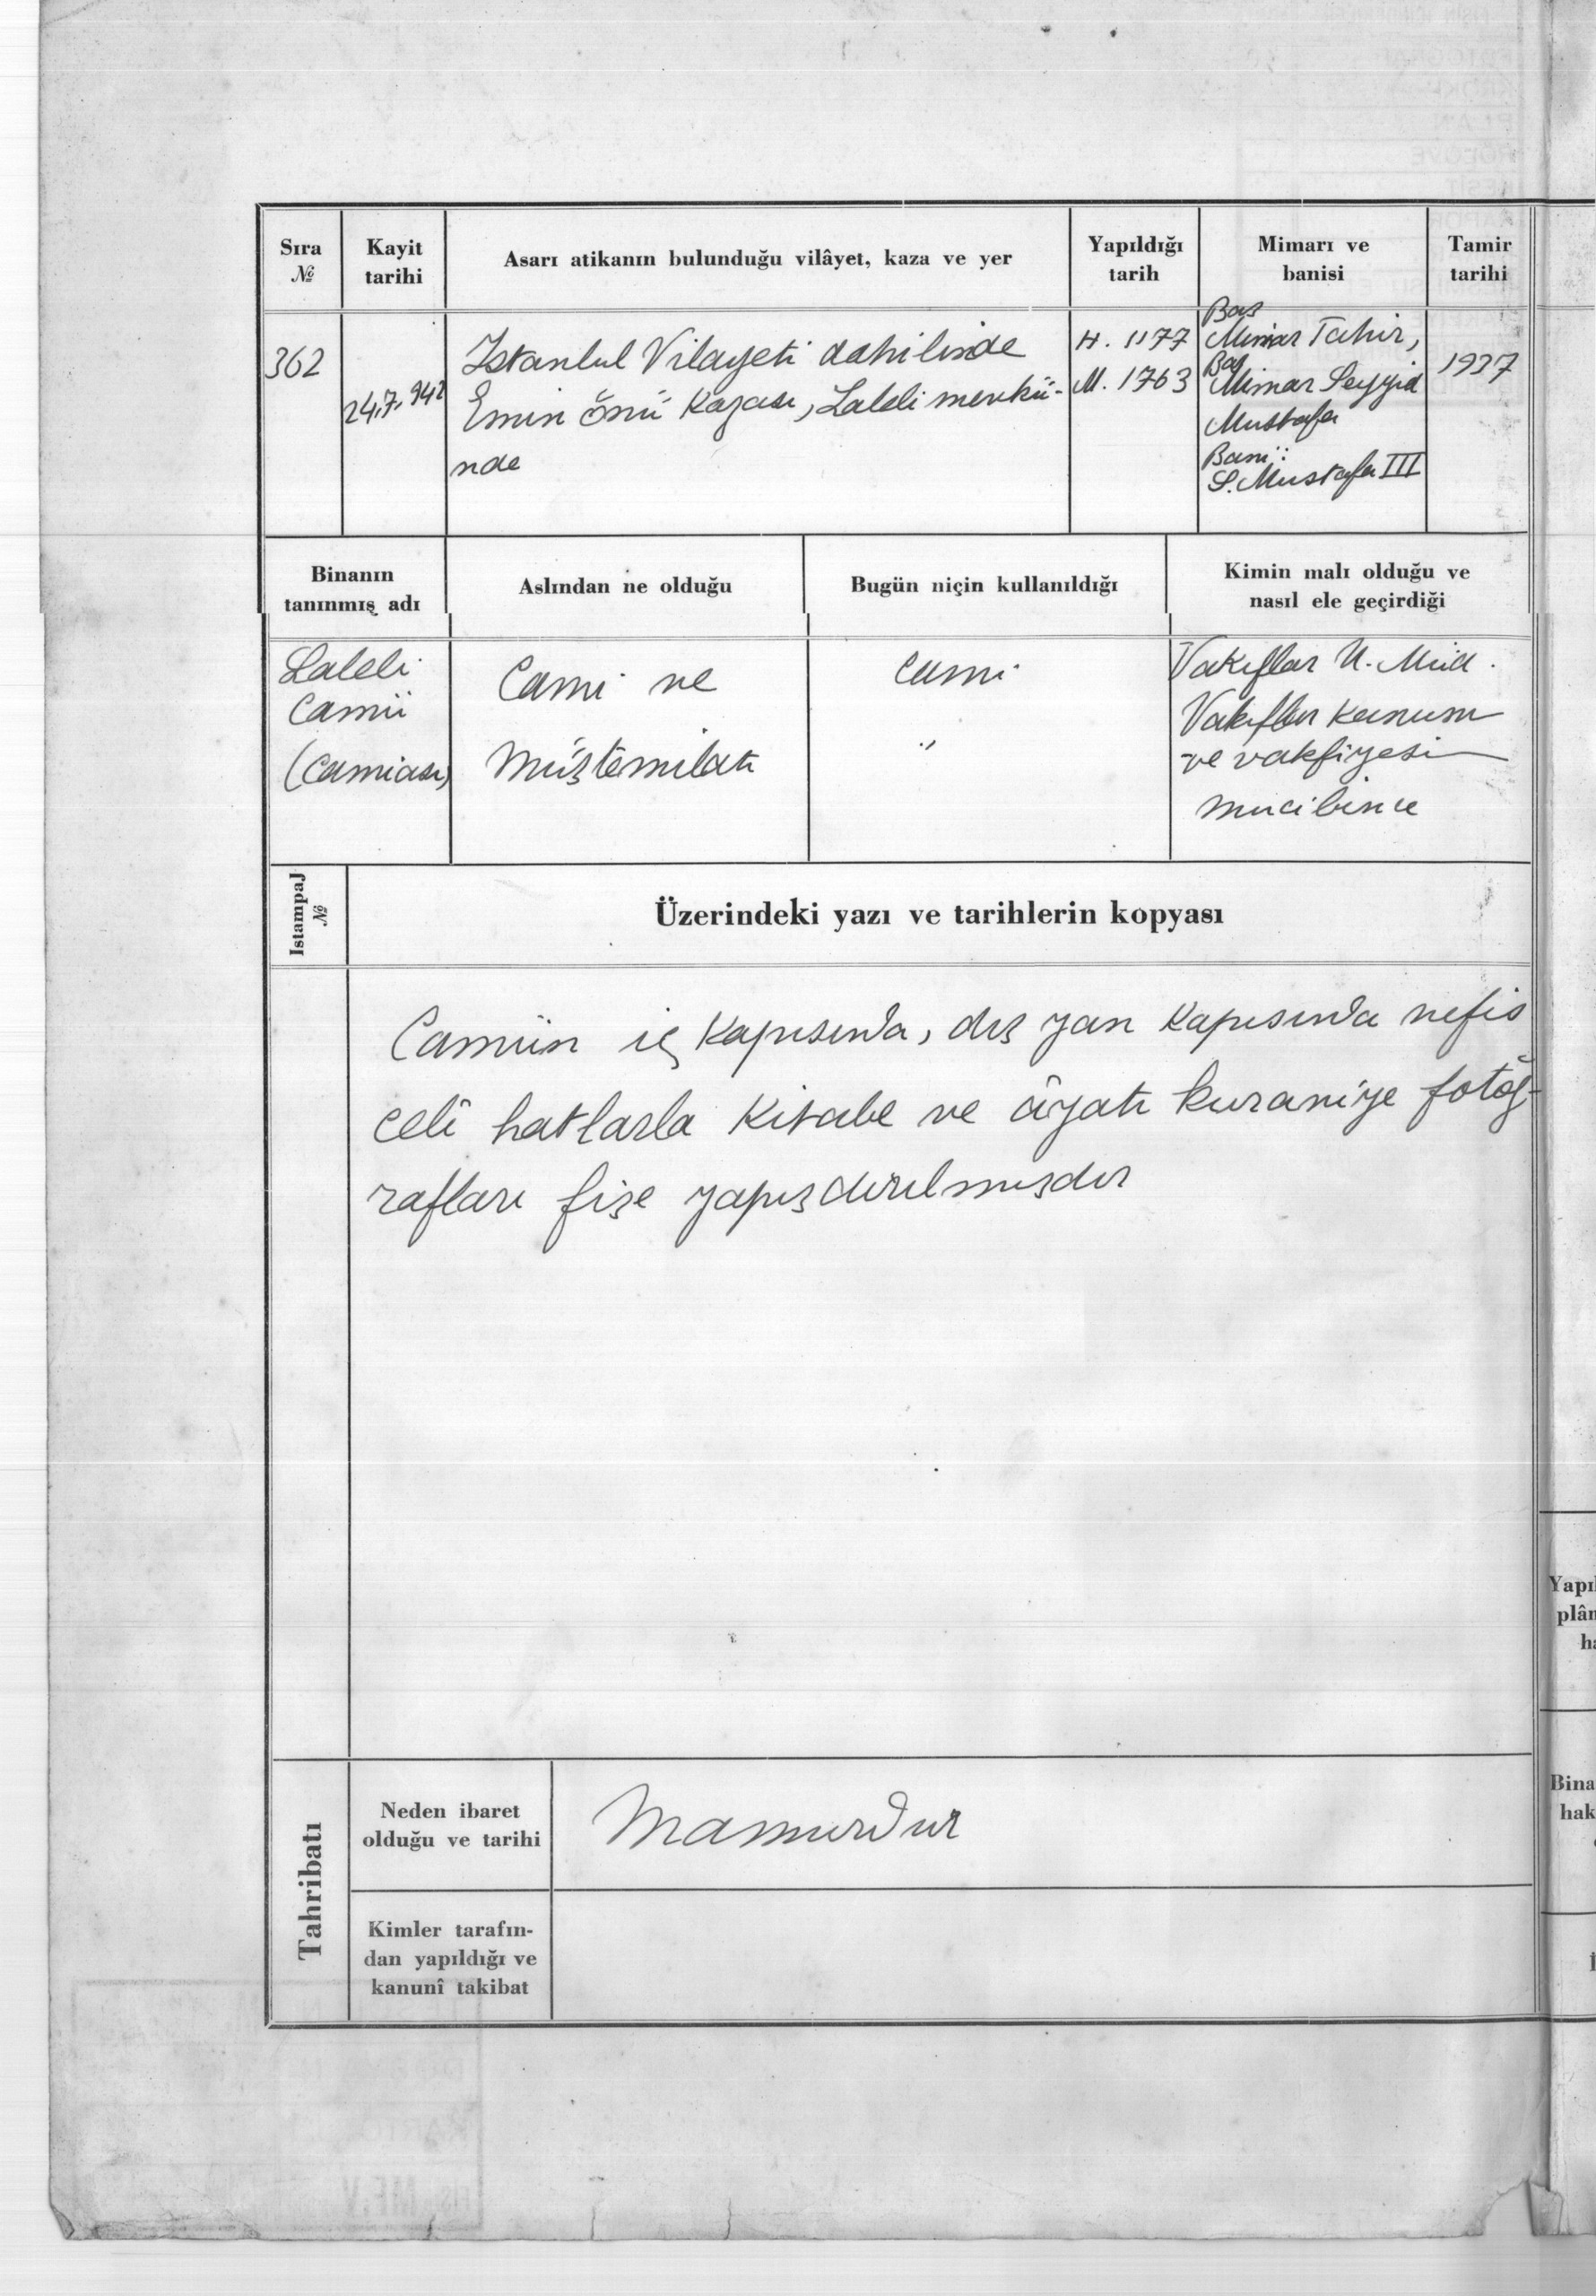 Sıra
№
Kayit
tarihi
Asarı atikanın bulunduğu vilâyet, kaza ve yer
Yapıldığı
tarih
Mimarı ve
banisi
Tamir
tarihi
362
24.7.942
Istanbul Vilayeti dahilinde
Emin önü Kazası, Laleli mevkii-
nde
H. 1177
M. 1763
Baş
Mimar Tahir,
Baş
Mimar Seyyid
Mustafa
Banii:
S. Mustafa III
1937
Binanın
tanınmış adı
Aslından ne olduğu
Bugün niçin kullanıldığı
Kimin malı olduğu ve
nasıl ele geçirdiği
Laleli
Camii
(Camiası)
Cami ve
Müştemilatı
Cami
"
Vakıflar U. Müd.
Vakıflar Kanunu
ve vakfiyesi
mucibince
Istampaj
№
Üzerindeki yazı ve tarihlerin kopyası
Camiin iç Kapısında, dış yan Kapısında nefis
celî hatlarla Kitabe ve âyatı kuraniye fotoğ-
rafları fişe yapışdırılmışdır
Tahribatı
Neden ibaret
olduğu ve tarihi
Mamurdur
Kimler tarafın-
dan yapıldığı ve
kanunî takibat
Yapıl
plân
ha
Bina
hak